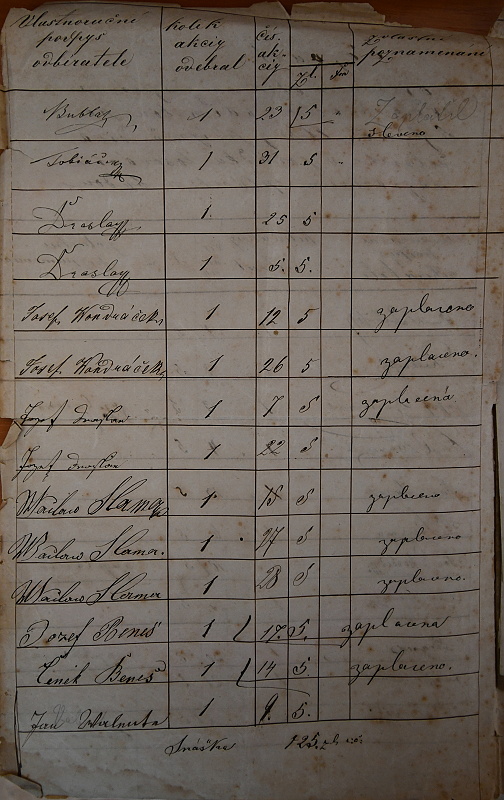 Vlastnoruční podpys odbíratele | kolik akciy odebral | čís. akciy | Zl. | zvláštní poznamenání
Bublak 1 23 5 sleveno
Tobiášek 1 31 5
Draslay 1 25 5
Draslay 1 5. 5.
Josef Kondráček 1 12 5 zaplaceno
Josef Kondráček 1 26 5 zaplaceno.
Jozef 1 7 5 zaplacená
Jozef 1 22 5
Waclaw Slama 1 18 5 zaplaceno
Waclaw Slama. 1 27 5 zaplaceno
Waclaw Slama 1 28 5 zaplaceno.
Jozef Beneš 1 17. 5. zaplacena
Čeněk Beneš 1 14 5. zaplaceno.
Jan Walenta 1 9. 5.
Snáška 125. zl.